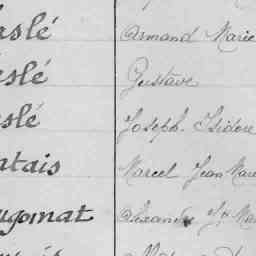 aslé Armand Marie
eslé Gustave
slé Joseph Isidore
ntais Marcel Jean Marie
ugomat Alexandre Jh Ma